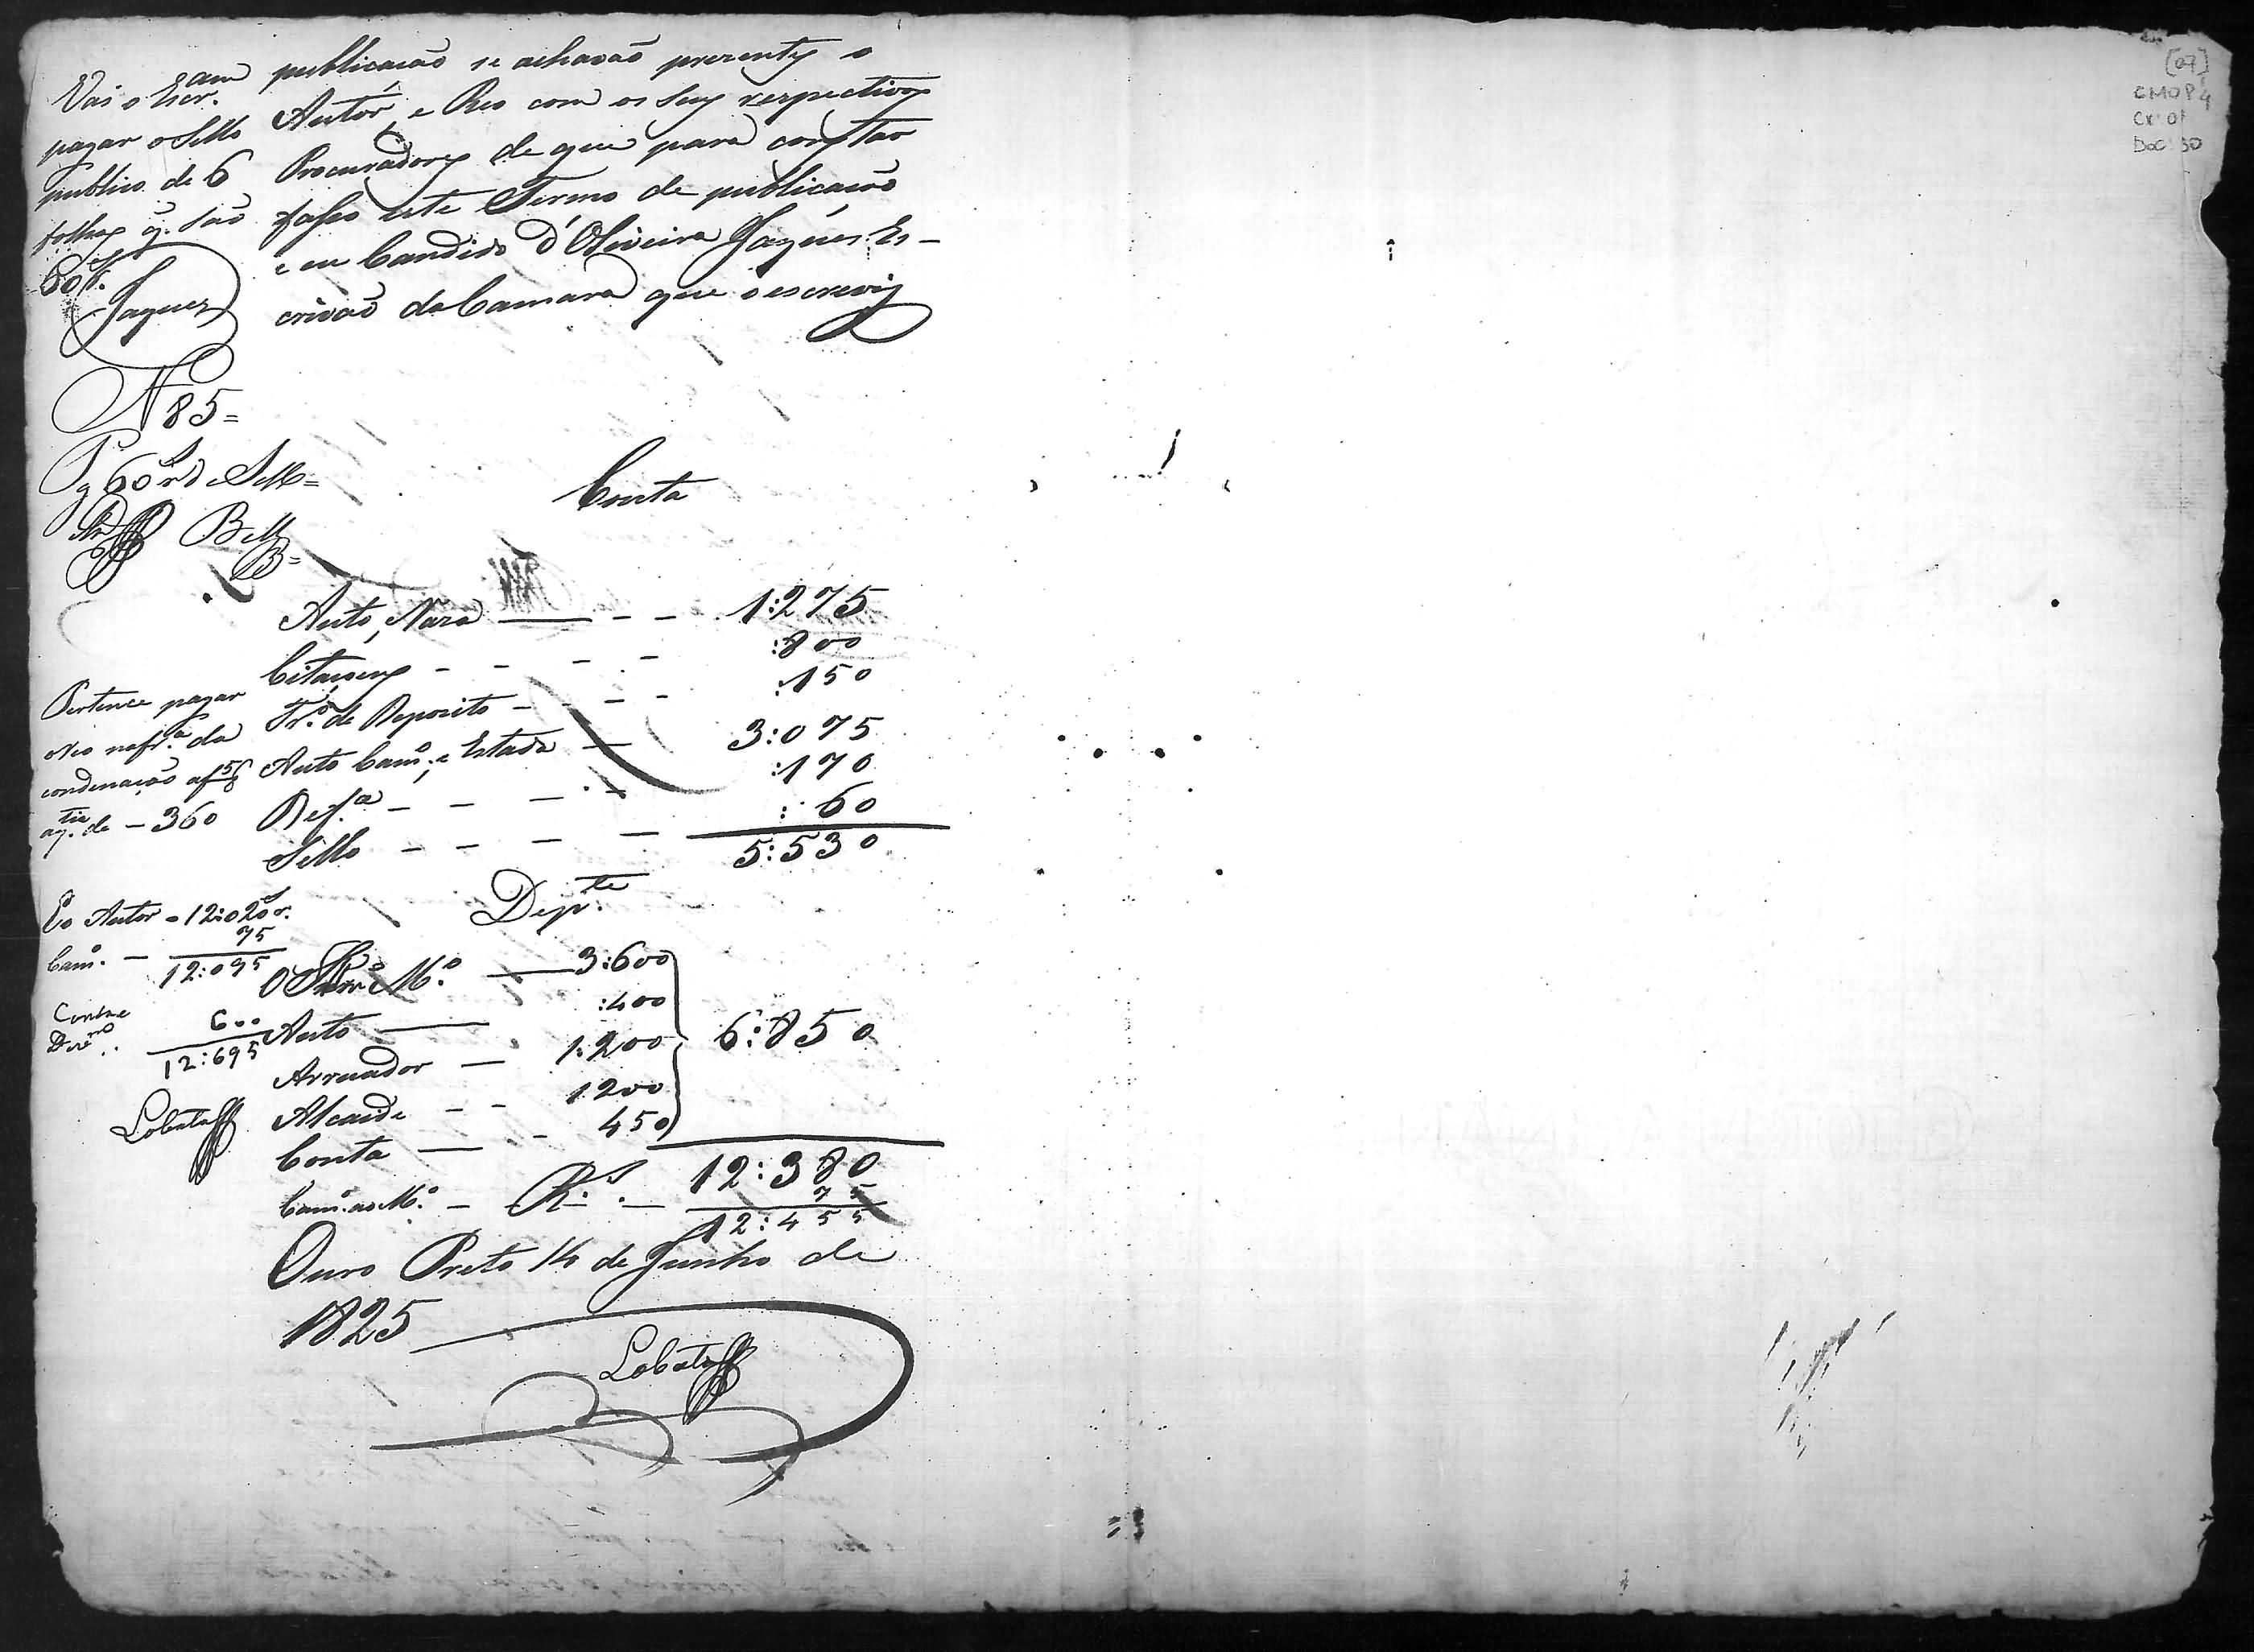 publicacaõ se achavaõ prezentes o
Autor, e Reo com os seus respectivos
Procuradores de que para constar
fasso este Termo de publicacaõ
e eu Candido d'Oliveira Jaques Es-
crivaõ da Camara que o escrevi
Vai o Escr.am
pagar o Sello
publico de 6
folhas q. saõ
60 r.s
Jaques
N 85=
Pg 60 r.s de Sello=
Conta
Auto, Naza — - - 1:275
Citaçoens - - - - :800
Tr.o de Deposito - - - - :150
Auto Cam.o, e Estada — 3:075
Ref.a - - - - :170
Sello - - - - : 60
5:530
Pertence pagar
o Reo na fr.a da
condenacaõ a f 5
aq.tia de - 360
Dep.te
Eo Autor - 12:020 r.s
Cam.o - 75
12:095
600
12:695
Lobato
M.o — 3:600
Auto — :400
Arruador — 1:200
Alcaide - - 1200
Conta — - 450
6:850
R.s — 12:380
Cam.o ao M.o - 75
12:455
Ouro Preto 14 de Junho de
1825
Lobato
[07]
CMOP
Cx 01
Doc 30